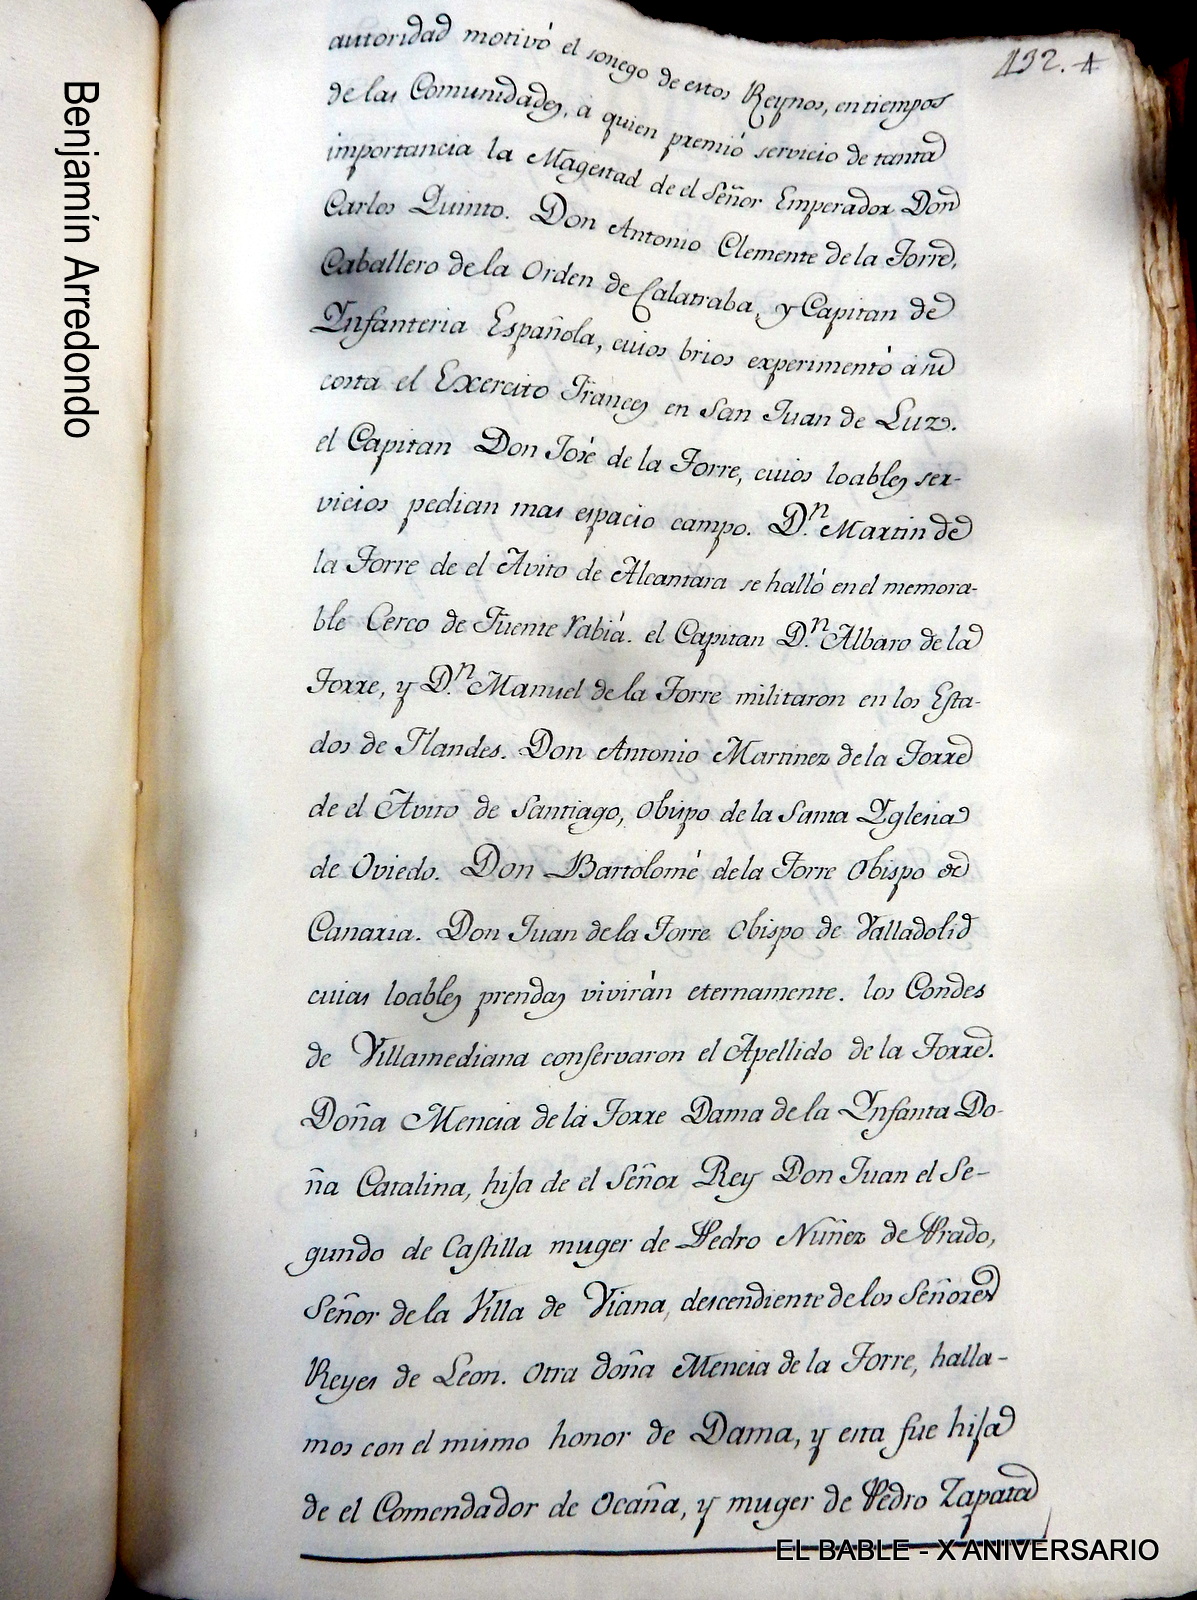 132.
autoridad motivó el sosiego de estos Reynos, en tiempos
de las Comunidades, à quien premió servicio de tanta
importancia la Magestad de el Señor Emperador Don
Carlos Quinto. Don Antonio Clemente de la Torre,
Caballero de la Orden de Calatraba, y Capitan de
Ynfanteria Española, cuios brios experimentó à su
costa el Exercito Frances en San Juan de Luz.
el Capitan Don José de la Torre, cuios loables ser-
vicios pedian mas espacio campo. D.n Martin de
la Torre de el Avito de Alcantara se halló en el memora-
ble Cerco de Fuente rabia. el Capitan D.n Albaro de la
Torre, y D.n Manuel de la Torre militaron en los Esta-
dos de Flandes. Don Antonio Martinez de la Torre
de el Avito de Santiago, Obispo de la Santa Yglesia
de Oviedo. Don Bartolomé de la Torre Obispo de
Canaria. Don Juan de la Torre Obispo de Valladolid
cuias loables prendas vivirán eternamente. los Condes
de Villamediana conservaron el Apellido de la Torre.
Doña Mencia de la Torre Dama de la Ynfanta Do-
ña Catalina, hija de el Señor Rey Don Juan el Se-
gundo de Castilla muger de Pedro Nuñez de Prado,
Señor de la Villa de Viana, descendiente de los Señores
Reyes de Leon. Otra doña Mencia de la Torre, halla-
mos con el mismo honor de Dama, y esta fue hija
de el Comendador de Ocaña, y muger de Pedro Zapata
Benjamín Arredondo
EL BABLE - X ANIVERSARIO